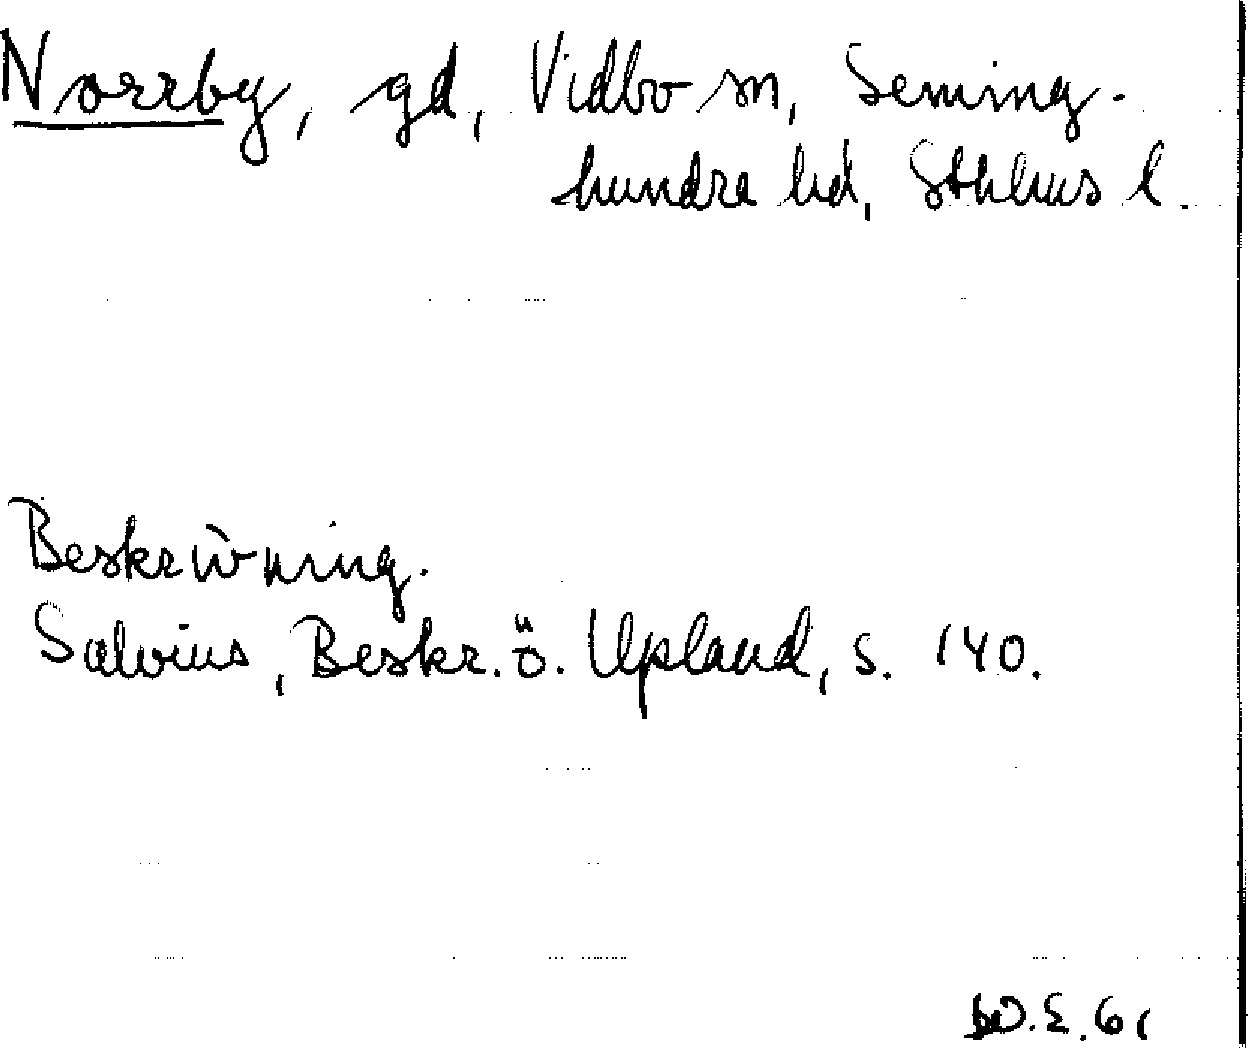 Norrby, gd, Vidbo sn, Seming-
hundra hd, Sthlms l.
Beskrivning.
Salvius, Beskr. ö. Upland, s. 140.